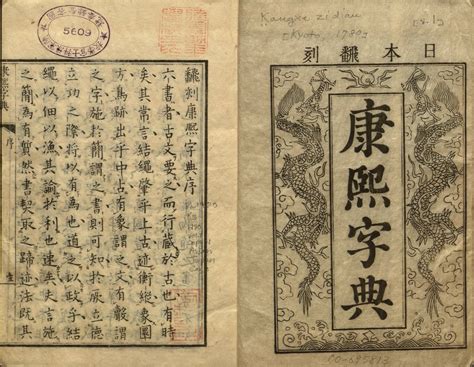 日本飜刻
康熙字典
5609
飜刻康熙字典序
六書者古文要之而行藏於古也有時
矣其常言結繩肇乎上古迹衡縱象圖
方寫跡出乎中古有像謂之文有數謂
之字施於簡謂之書則可知於厥立德
立功之際將以有為也道之以政乎結
繩以佃以漁其諭於利也速矣史言施
之簡為有暫然書契取之歸迹法既其
康熙字典
序